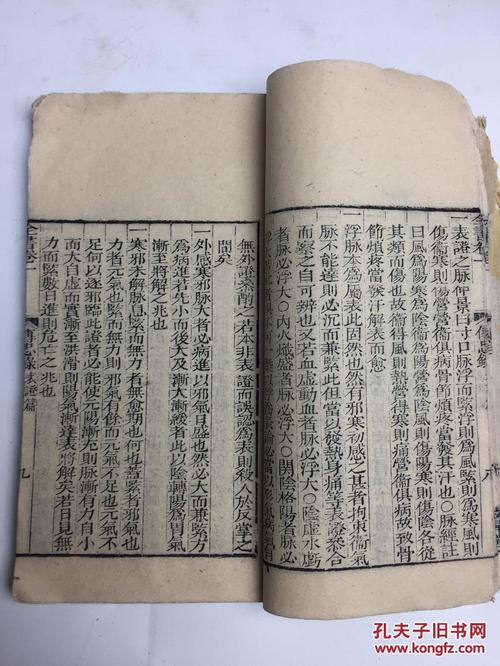 全書卷一
傳忠錄
一表證之脈仲景曰寸口脈浮而緊浮則為風緊則為寒風則
傷衛寒則傷營營衛俱病骨節煩疼當發其汗也○脈經註
曰風為陽寒為陰衛為陽營為陰風則傷陽寒則傷陰各從
其類而傷也故衛得風則熱營得寒則痛營衛俱病故致骨
節煩疼當發汗解表而愈
一浮脈本為屬表此固然也然有邪寒初感之甚者拘束衛氣
脈不能達則必沉而兼緊此但當以發熱身痛等表證參合
而察之自可辨也又若血虛動血者脈必浮大○陰虛水虧
者脈必浮大○內火熾盛者脈必浮大○關陰格陽者脈必
無外證參酌之若本非表證而誤認為表則殺人於反掌之
間矣
一外感寒邪脈大者必病進以邪氣日盛也然必大而兼緊方
為病進若先小而後大及漸大漸緩者此以陰轉陽為胃氣
漸至將解之兆也
一寒邪未解脈息緊而無力者無愈期也何也蓋緊者邪氣也
力者元氣也緊而無力則邪氣有餘而元氣不足也元氣不
足何以逐邪臨此證者必能使元陽漸充則脈漸有力自小
而大自虛而實漸至洪滑則陽氣漸達表將解矣若日見無
力而緊數日進則危亡之兆也
全書卷一
傳忠錄 表證篇
九
孔夫子旧书网
www.kongfz.com